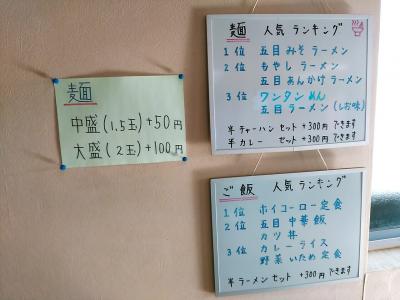 麺
中盛(1.5玉)+50円
大盛(2玉)+100円
麺 人気ランキング
1位 五目みそラーメン
2位 もやしラーメン
五目あんかけラーメン
3位 ワンタンめん
五目ラーメン(しお味)
半チャーハンセット +300円できます
半カレーセット +300円できます
ご飯 人気ランキング
1位 ホイコーロー定食
2位 五目中華飯
カツ丼
3位 カレーライス
野菜いため定食
半ラーメンセット +300円できます